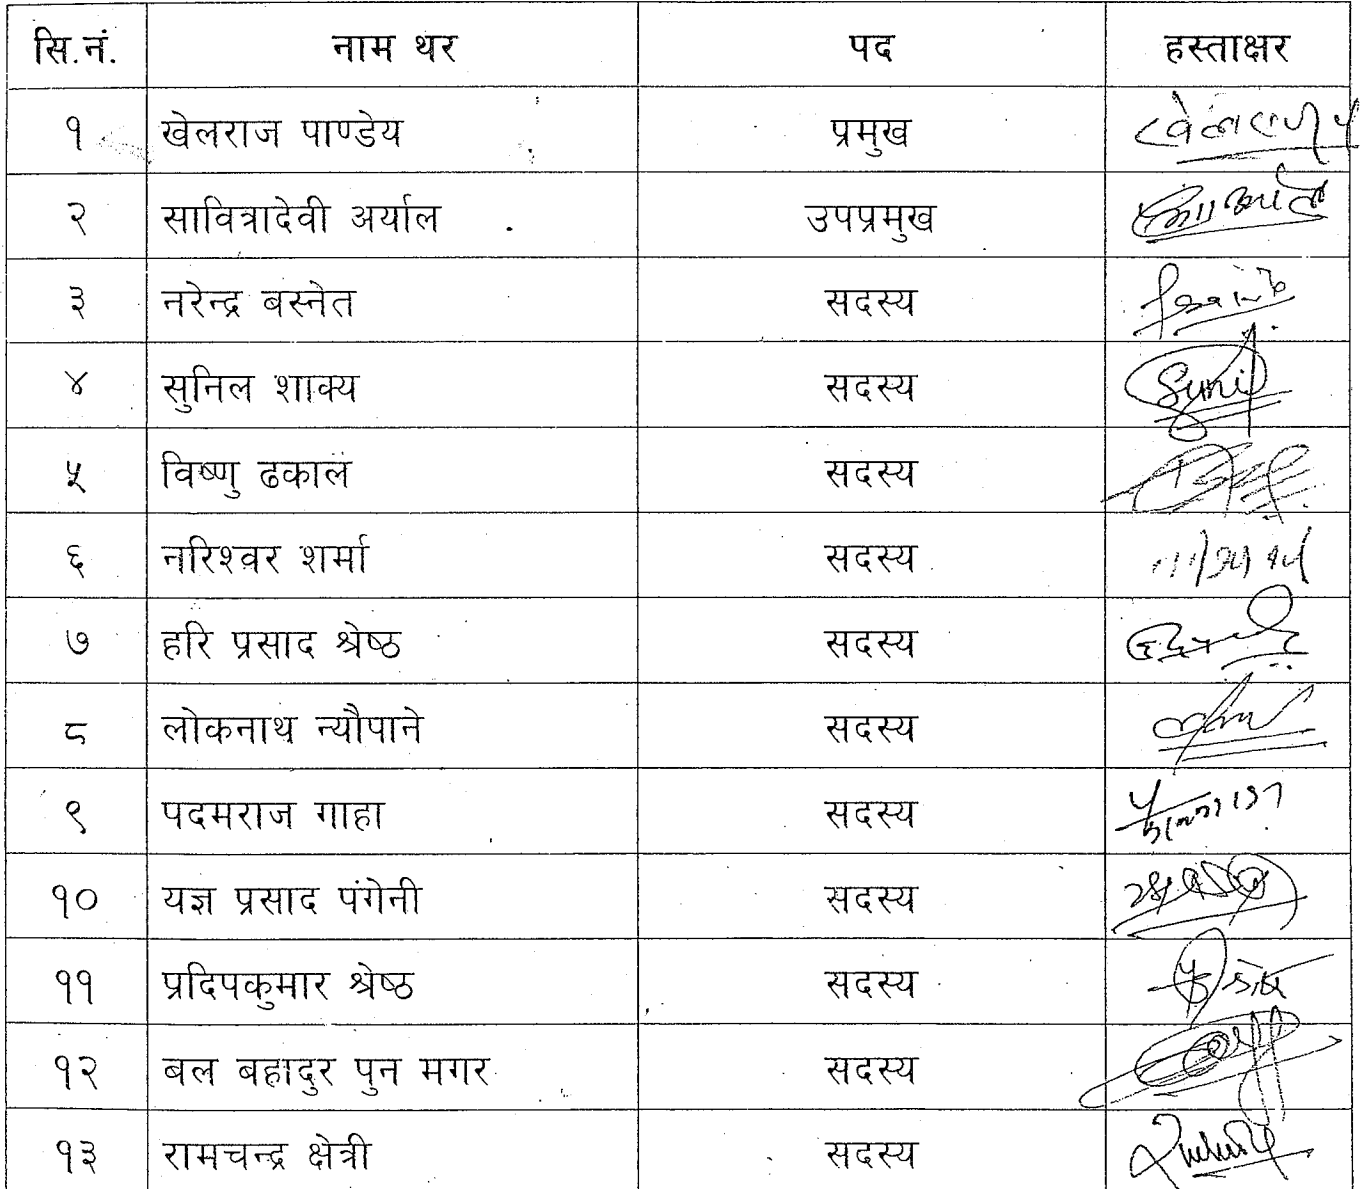 सि.नं. नाम थर पद हस्ताक्षर
१ खेलराज पाण्डेय प्रमुख
२ सावित्रादेवी अर्याल उपप्रमुख
३ नरेन्द्र बस्नेत सदस्य
४ सुनिल शाक्य सदस्य Sunil
५ विष्णु ढकाल सदस्य
६ नरिश्वर शर्मा सदस्य
७ हरि प्रसाद श्रेष्ठ सदस्य
८ लोकनाथ न्यौपाने सदस्य
९ पदमराज गाहा सदस्य
१० यज्ञ प्रसाद पंगेनी सदस्य
११ प्रदिपकुमार श्रेष्ठ सदस्य
१२ बल बहादुर पुन मगर सदस्य
१३ रामचन्द्र क्षेत्री सदस्य